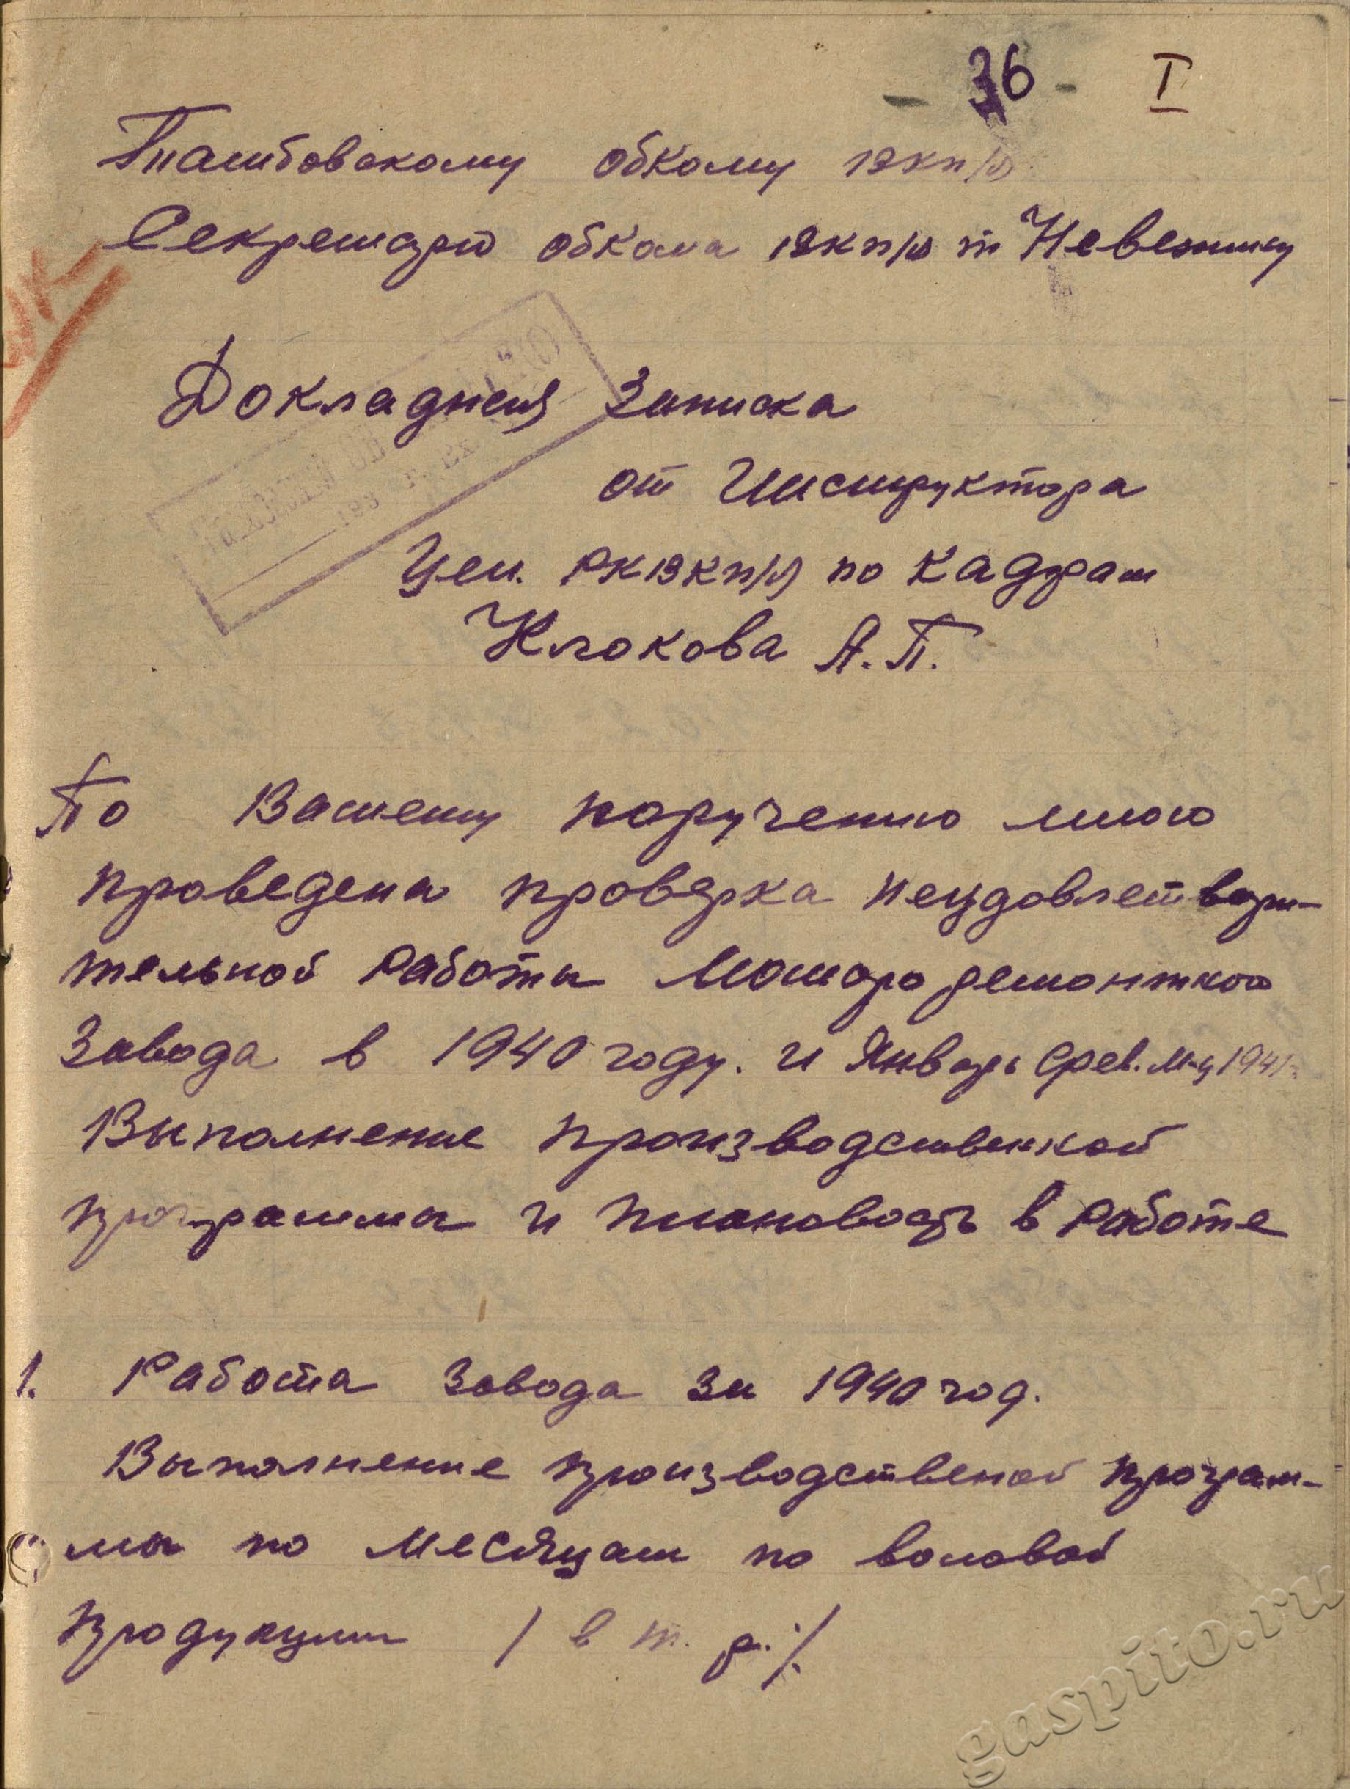 - 36 - I
Тамбовскому обкому ВКП/б/
Секретарю обкома ВКП/б т Невежину
Докладная Записка
от Инструктора
РКВКП/б/ по Кадрам
Клокова А.П.
По Вашему поручению мною
проведена проверка неудовлетвори-
тельной Работы Моторо ремонтного
Завода в 1940 году. и Январь 1941
Выполнение производственной
программы и в Работе
1. Работа Завода за 1940 год.
Выполнение производственой програм-
мы по месяцам по воловой
продукции / в т. р. /
gaspito.ru